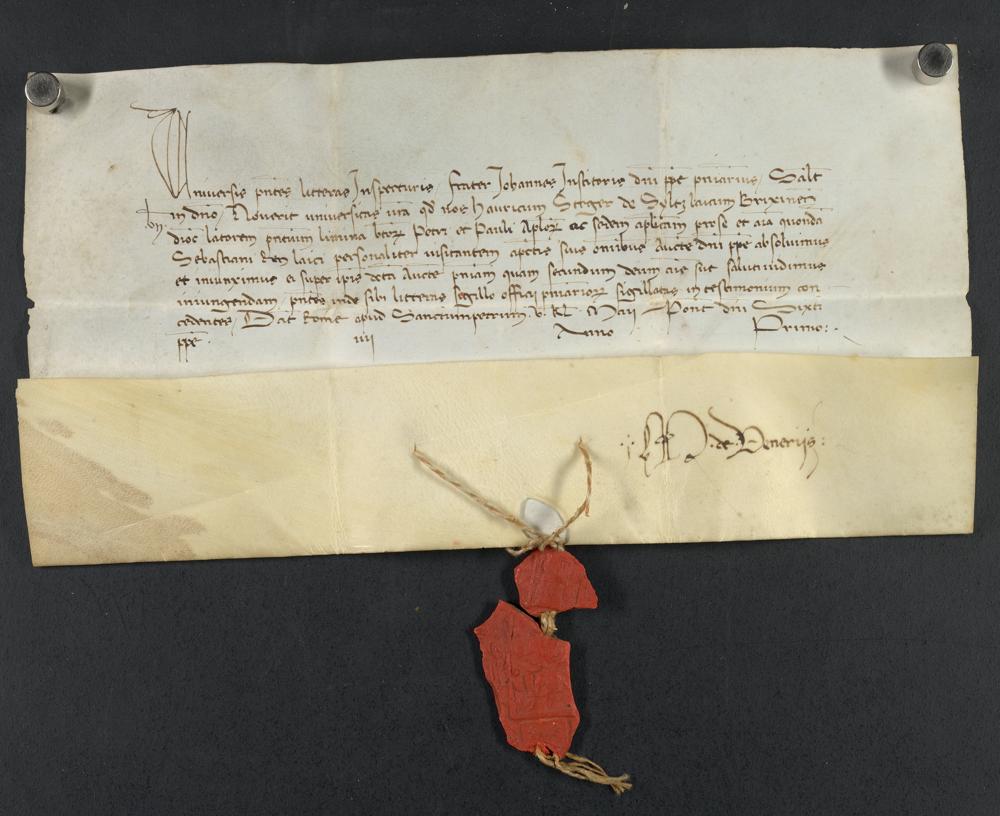 Universis pntes litteras Inspecturis, frater Johannes Institoris dni ppe pniarius, Salt
in dno, Noverit universitas vra qd nos hauricum Steger de Syltz laicum Brixineñ
dioc latorem pntium limina btor Petri et Pauli Aplor ac sedem aplicam pro se et aia quonda
Sebastiani laici personaliter visitantem apctis suis omnibus Aucte dni ppe absolvimus
et iniunximus ei super ipis dcta Aucte pniam quam secundum deum aie sue saluti vidimus
iniungendam, pntes inde sibi litteras sigillo officij pniarior sigillatas in testimonium con
cedentes, Dat Rome apud Sanctumpetrum v. kl Maii Pont dni Sixti
ppe iiij Anno Primo:.
de Veneriis: